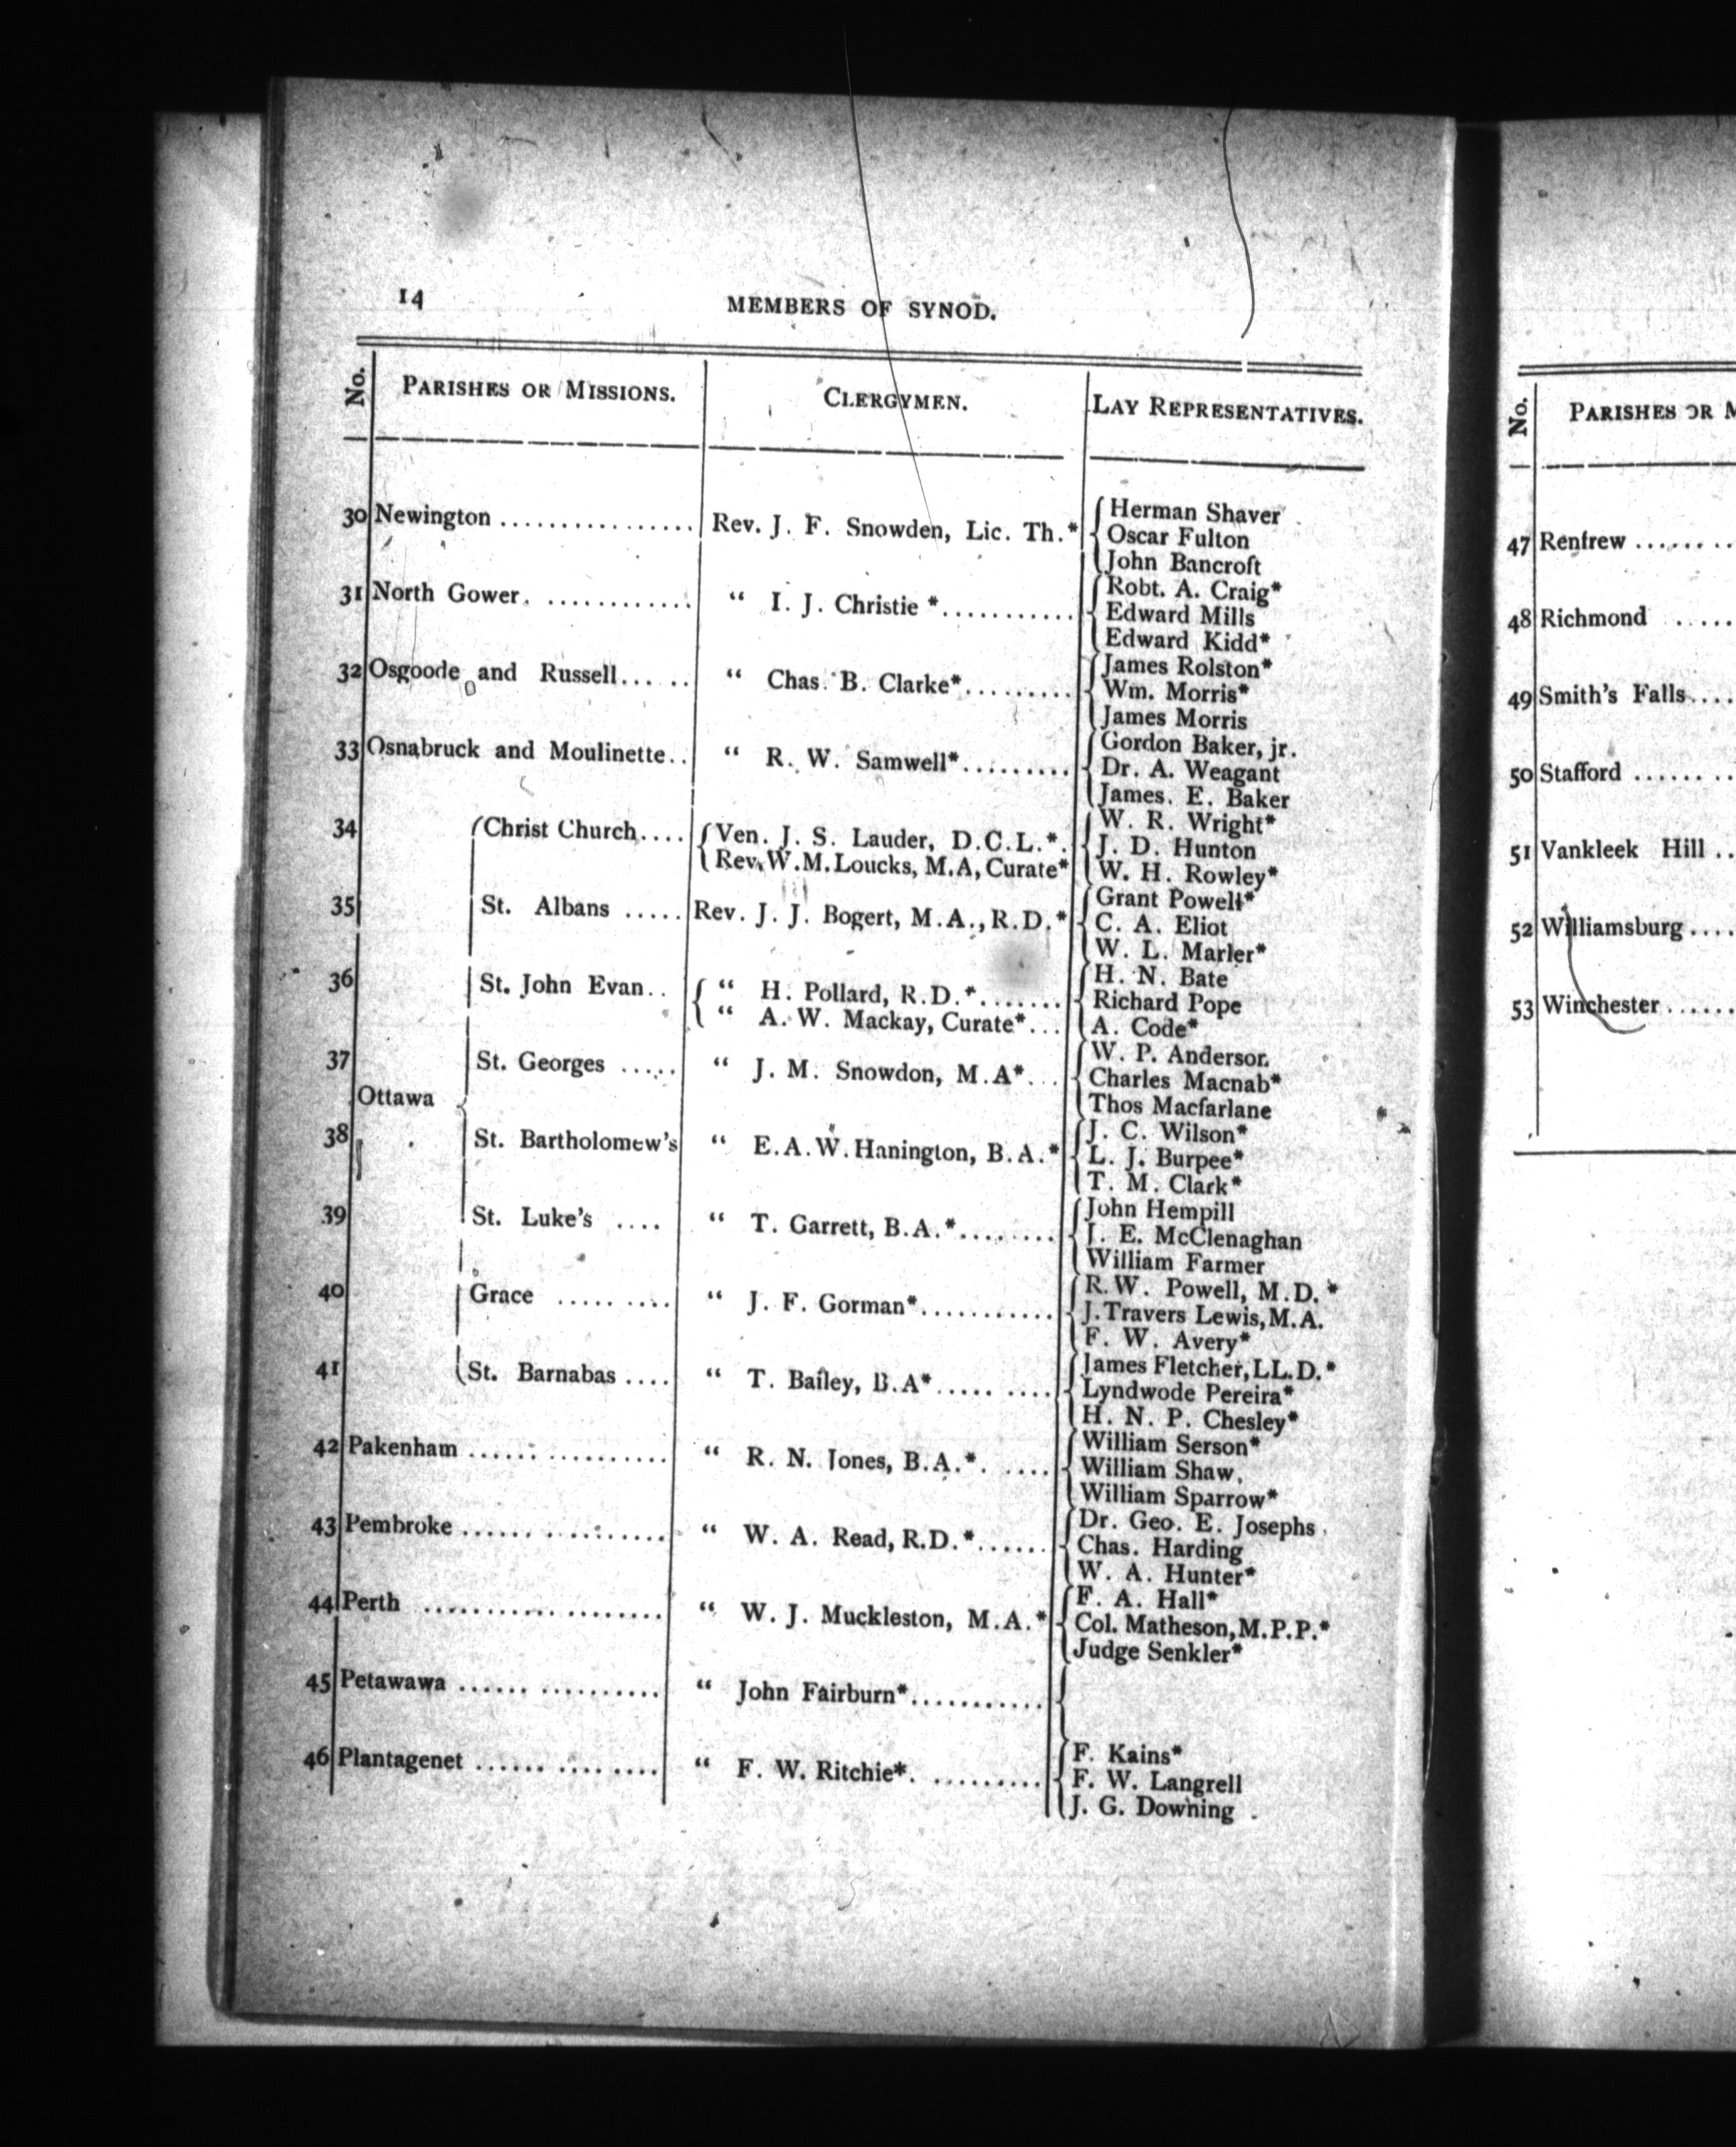 14
MEMBERS OF SYNOD.
No. PARISHES OR MISSIONS. CLERGYMEN. LAY REPRESENTATIVES.
30 Newington ................ Rev. J. F. Snowden, Lic. Th.* Herman Shaver
Oscar Fulton
John Bancroft
31 North Gower. ............ “ I. J. Christie *........... Robt. A. Craig*
Edward Mills
Edward Kidd*
32 Osgoode and Russell... .. “ Chas. B. Clarke*......... James Rolston*
Wm. Morris*
James Morris
33 Osnabruck and Moulinette.. “ R. W. Samwell*......... Gordon Baker, jr.
Dr. A. Weagant
James. E. Baker
34 Christ Church.... Ven. J. S. Lauder, D.C.L.*. W. R. Wright*
Rev. W. M. Loucks, M.A, Curate* J. D. Hunton
W. H. Rowley*
35 St. Albans ..... Rev. J. J. Bogert, M.A., R.D.* Grant Powell*
C. A. Eliot
W. L. Marler*
36 St. John Evan.. “ H. Pollard, R.D.*....... H. N. Bate
“ A. W. Mackay, Curate*... Richard Pope
A. Code*
37 St. Georges ..... “ J. M. Snowdon, M.A*... W. P. Anderson.
Charles Macnab*
Thos Macfarlane
Ottawa
38 St. Bartholomew's “ E. A. W. Hanington, B.A.* J. C. Wilson*
L. J. Burpee*
T. M. Clark*
39 St. Luke's .... “ T. Garrett, B.A.*........ John Hempill
J. E. McClenaghan
William Farmer
40 Grace ..... .... “ J. F. Gorman*............ R. W. Powell, M.D.*
J. Travers Lewis, M.A.
F. W. Avery*
41 St. Barnabas .... “ T. Bailey, B.A*..... .... James Fletcher, LL.D.*
Lyndwode Pereira*
H. N. P. Chesley*
42 Pakenham ...... .......... “ R. N. Jones, B.A.*. .... William Serson*
William Shaw.
William Sparrow*
43 Pembroke ...... .......... “ W. A. Read, R.D.*...... Dr. Geo. E. Josephs
Chas. Harding
W. A. Hunter*
44 Perth ........... ........ “ W. J. Muckleston, M.A.* F. A. Hall*
Col. Matheson, M.P.P.*
Judge Senkler*
45 Petawawa ...... .......... “ John Fairburn*...........
46 Plantagenet ...... .... .... “ F. W. Ritchie*. ......... F. Kains*
F. W. Langrell
J. G. Downing
No. PARISHES OR M
47 Renfrew .......
48 Richmond ....
49 Smith's Falls....
50 Stafford .......
51 Vankleek Hill ..
52 Williamsburg ....
53 Winchester ......